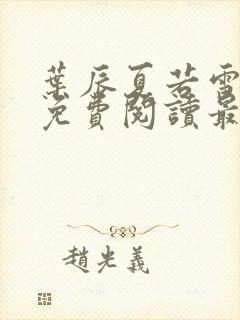 葉辰夏若雪
免費閱讀最
趙光義